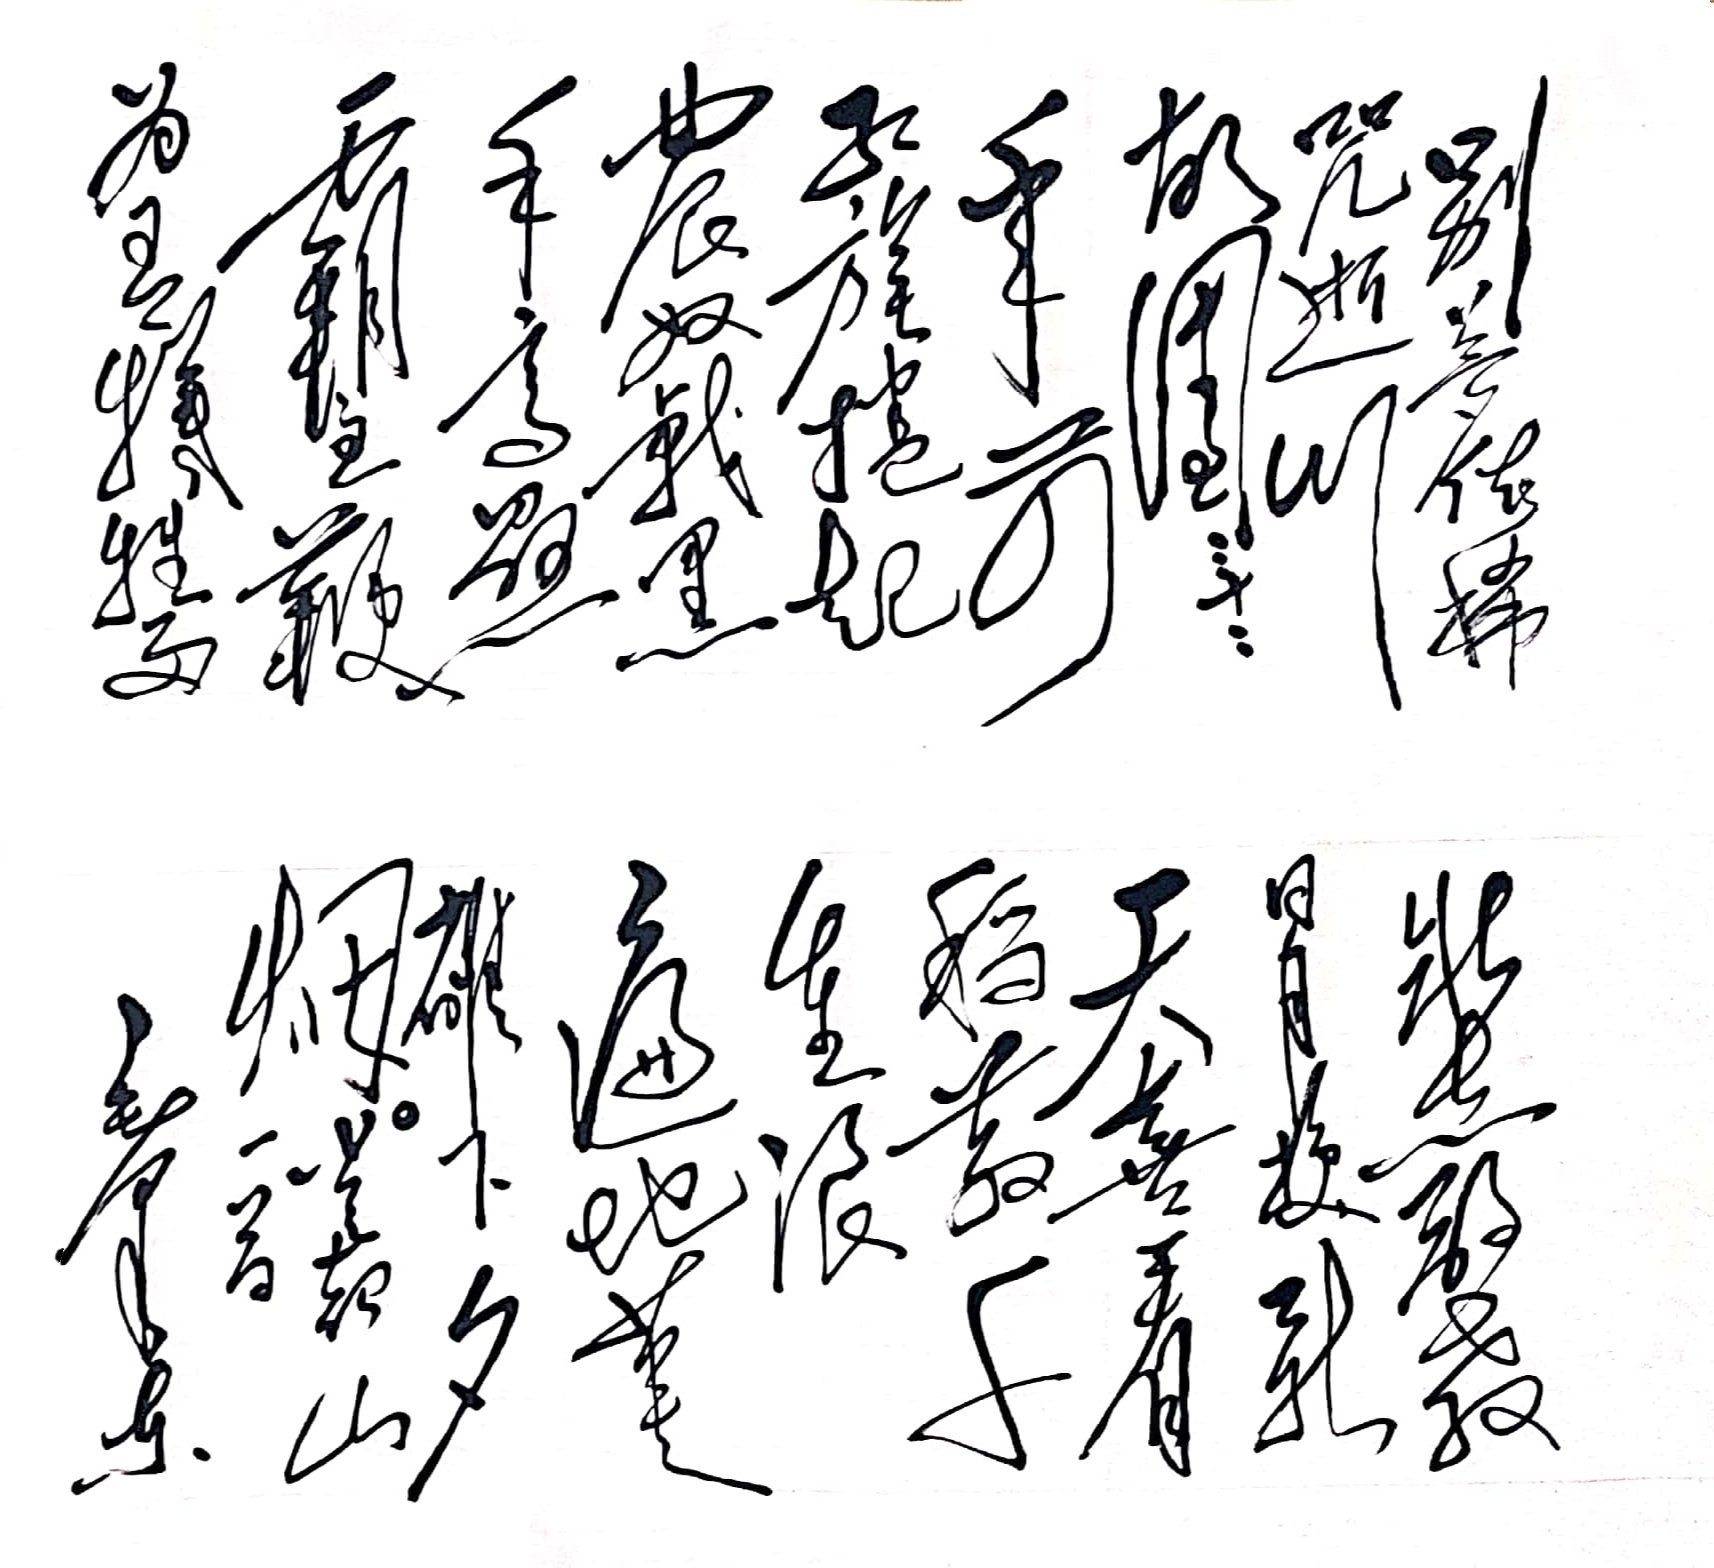 别梦依稀
咒逝川
故園三十二
年前
红旗捲起
農奴戟黑
手高懸
霸主鞭
为有犧牲多
壮志敢教
日月换新
天喜看
稻菽千
重浪
遍地英
雄下夕
烟。韶山
一首
毛澤東